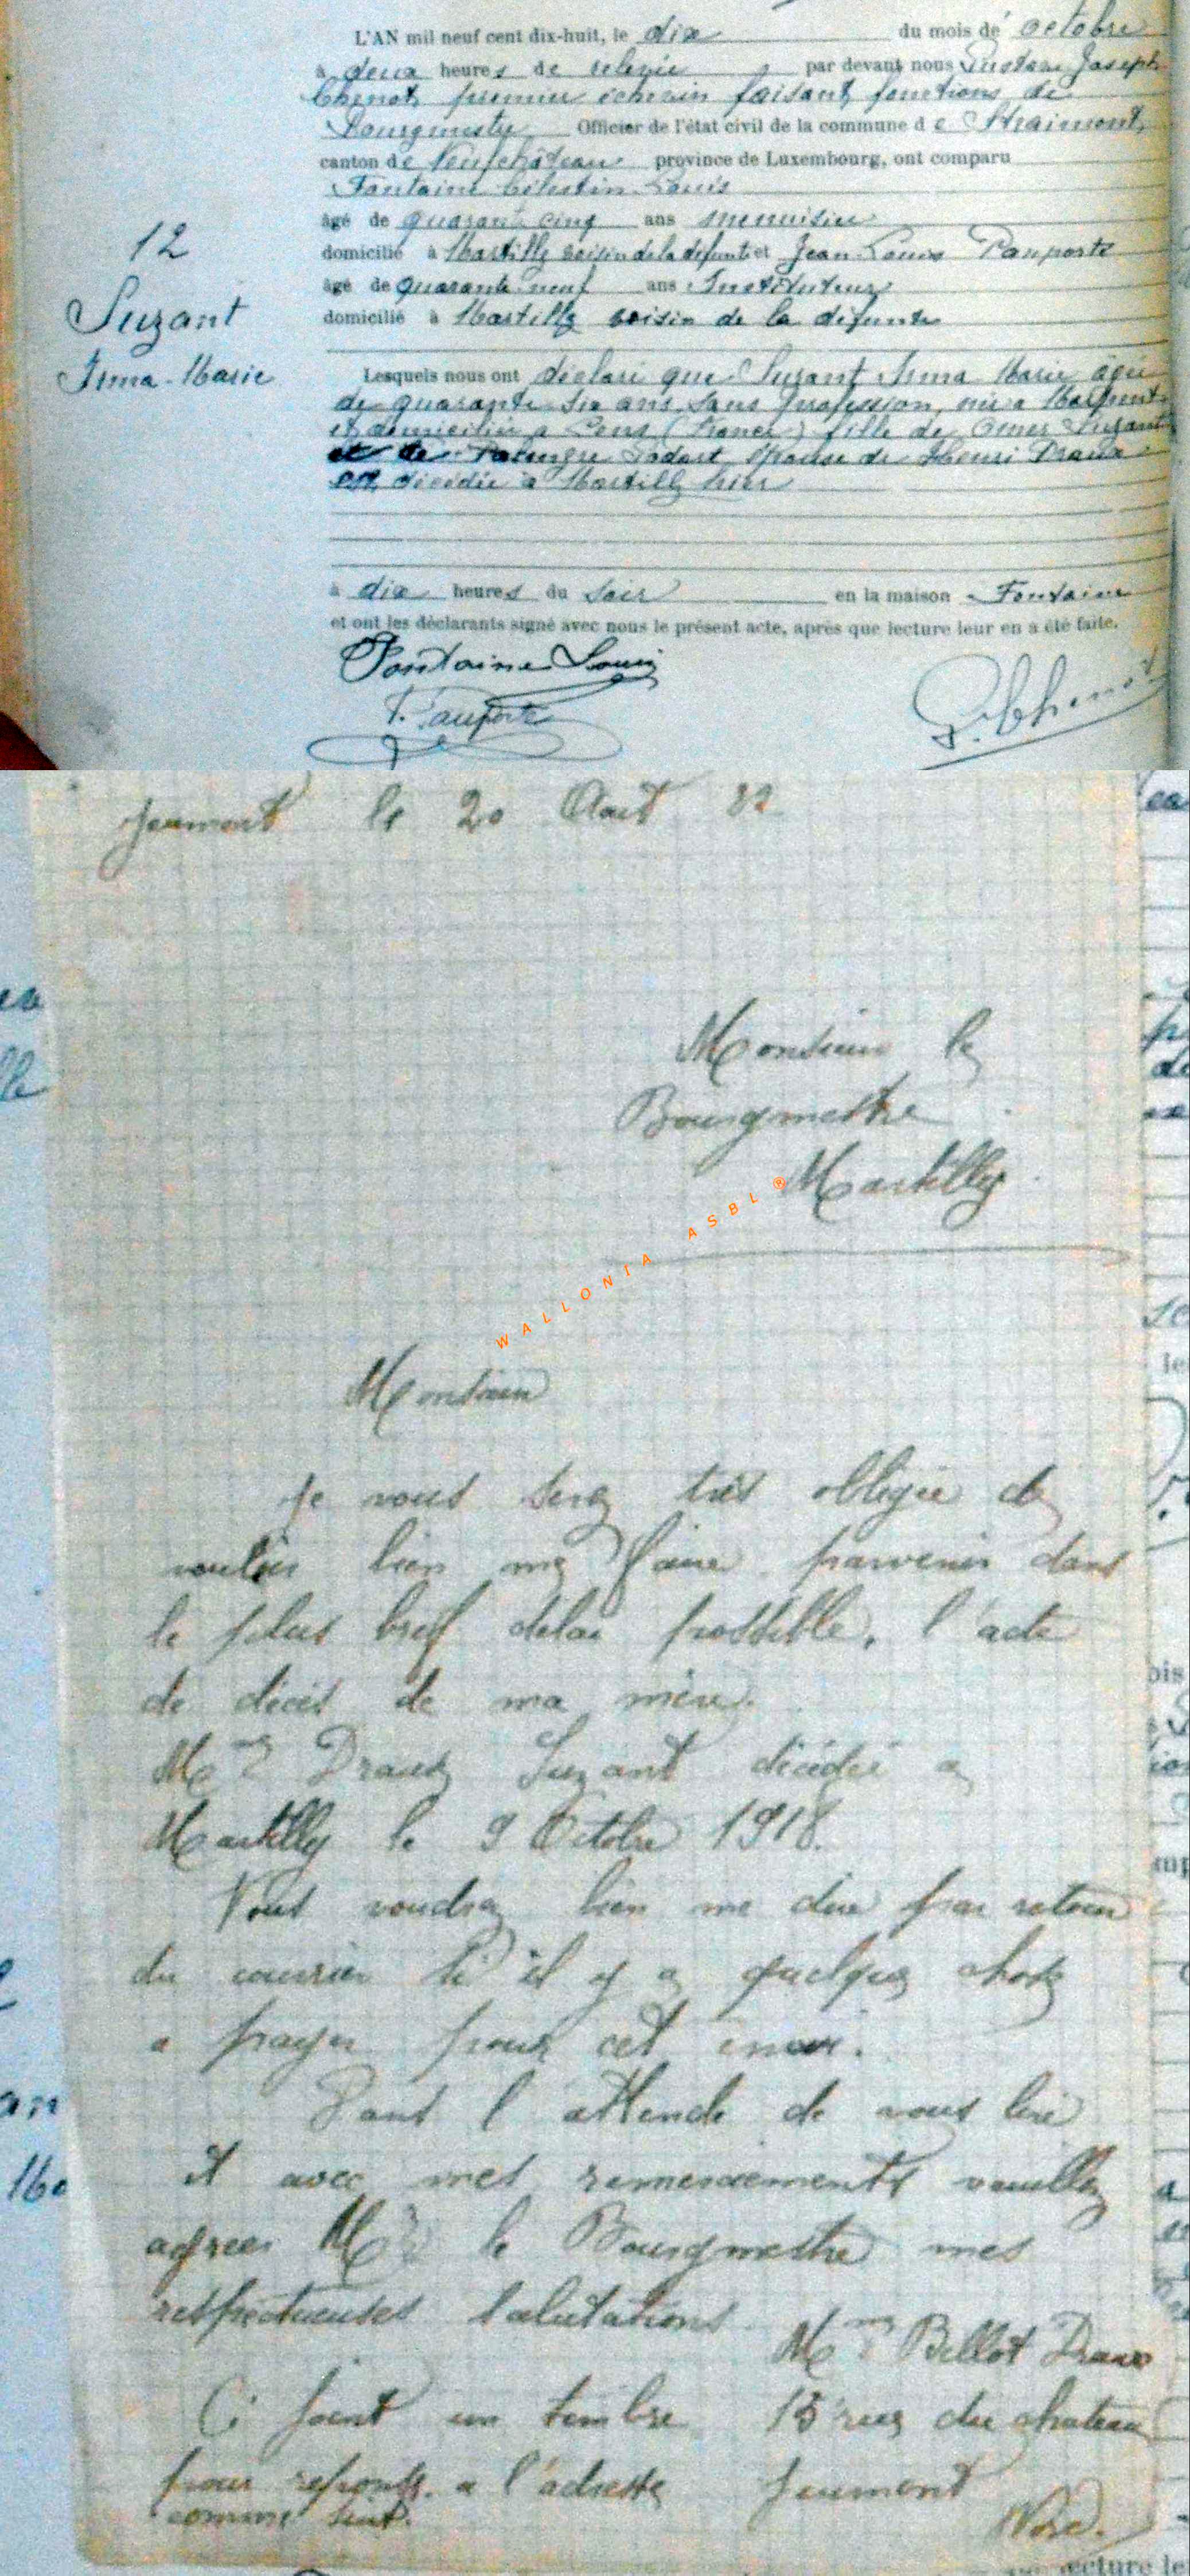 L'AN mil neuf cent dix-huit, le dix du mois de octobre
à deux heures de relevée par devant nous Gustave Joseph
Chenot, premier échevin faisant fonctions de
Bourgmestre Officier de l'état civil de la commune de Straimont,
canton de Neufchâteau province de Luxembourg, ont comparu
Fontaine Célestin Louis
âgé de quarante cinq ans menuisier
domicilié à Martilly voisin de la défunte et Jean Louis Pauporté
âgé de quarante neuf ans Instituteur
domicilié à Martilly voisin de la défunte
12
Suzant
Irma-Marie
Lesquels nous ont déclaré que Suzant Irma Marie âgée
de quarante six ans sans profession, née à Marpent
et domiciliée à Lens (France) fille de Omer Suzant
et de Godart épouse de Henri Draux
est décédée à Martilly hier
à dix heures du soir en la maison Fontaine
et ont les déclarants signé avec nous le présent acte, après que lecture leur en a été faite.
Fontaine Louis
J. Pauporté
G. Chenot
Jeumont le 20 Aout 22
Monsieur le
Bourgmestre
Martilly
WALLONIA ASBL ®
Monsieur
Je vous serez très obligée de
vouloir bien me faire parvenir dans
le plus bref délai possible, l'acte
de décès de ma mère.
Mme Draux Suzant décédée a
Martilly le 9 Octobre 1918.
Vous voudrez bien me dire par retour
du courrier si il y a quelque chose
a payer pour cet envoi.
Dans l attende de vous lire
et avec mes remerciements veuillez
agreer Mr le Bourgmestre mes
respectueuses salutations
Mme Billot Draux
Ci joint un timbre 15 rue du chateau
pour reponse a l'adresse Jeumont
comme suit. Nord.